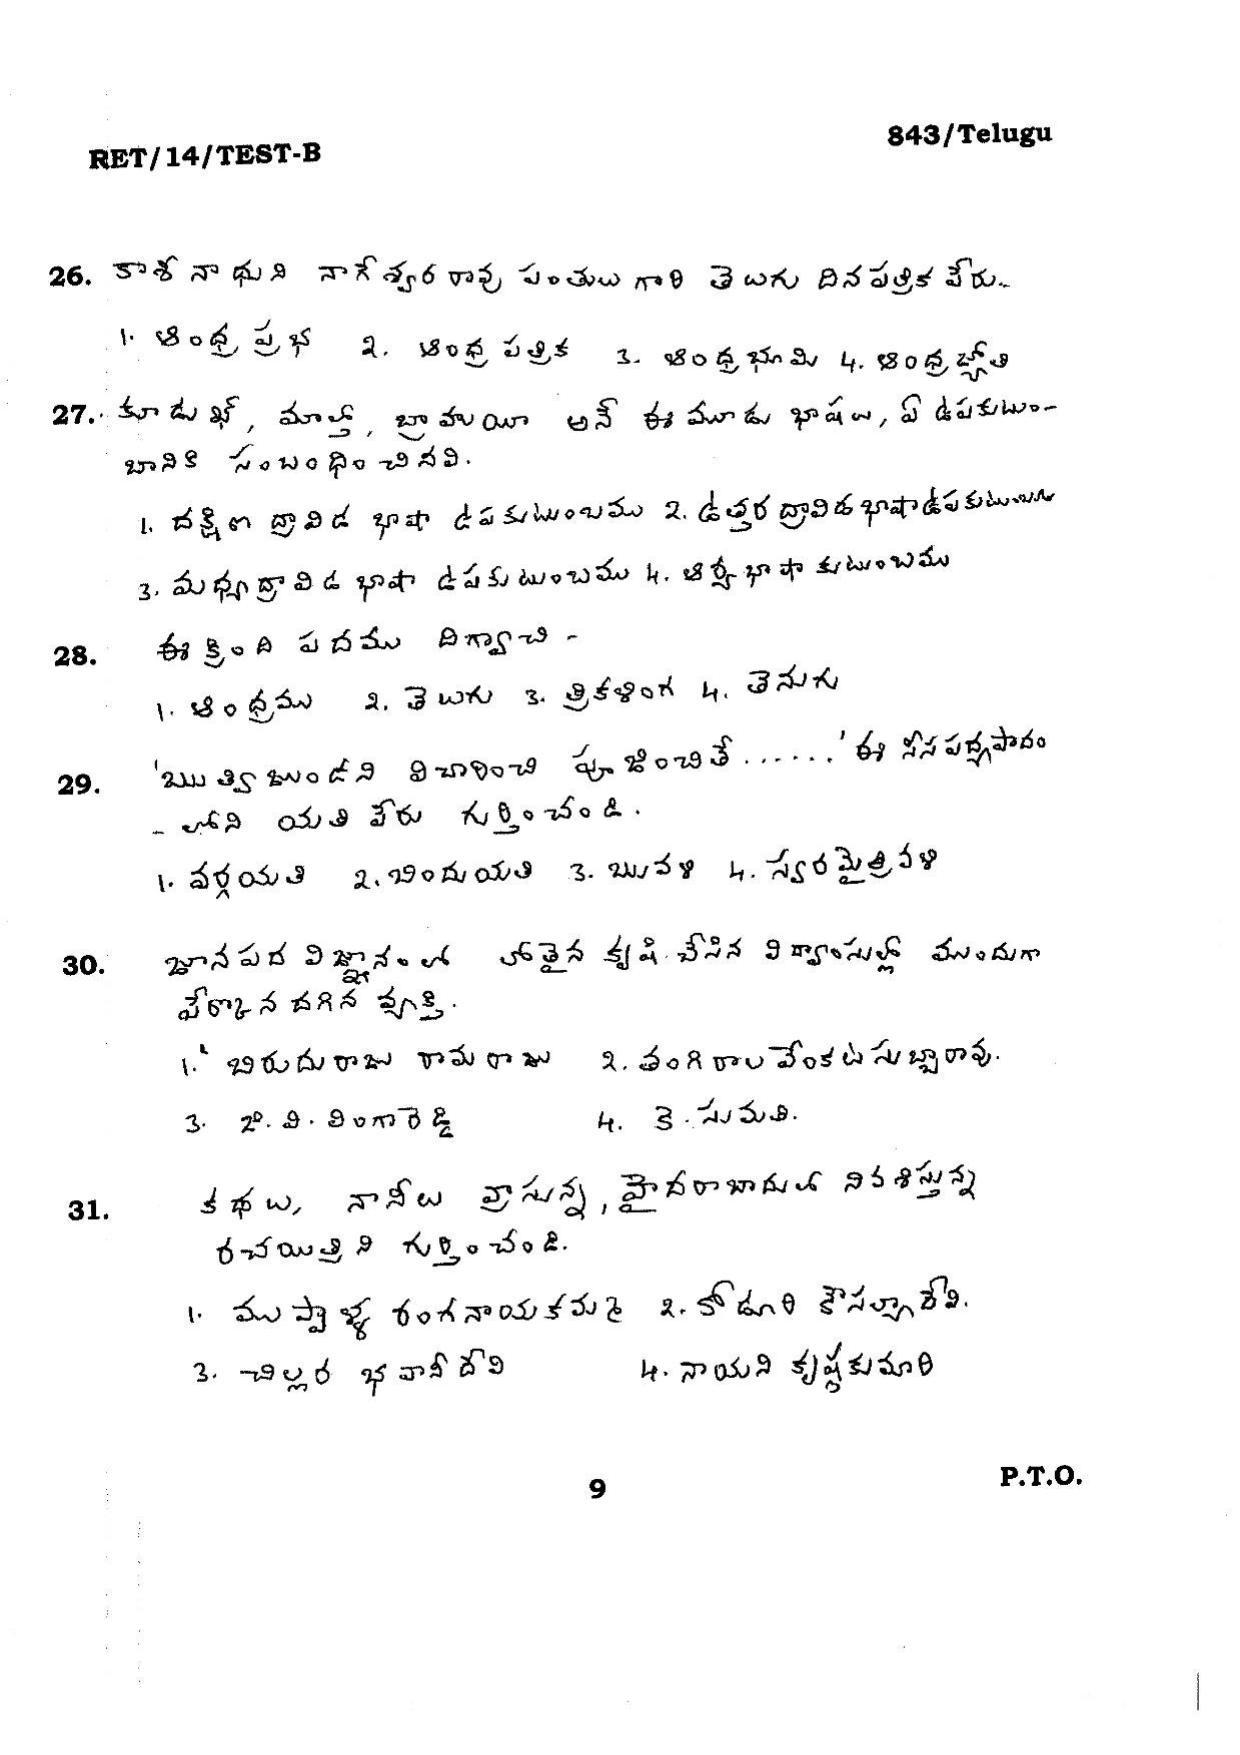 843/Telugu
RET/14/TEST-B
26. కాశీనాథుని నాగేశ్వరరావు పంతులు గారి తెలుగు దినపత్రిక పేరు-
1. ఆంధ్రప్రభ 2. ఆంధ్రపత్రిక 3. ఆంధ్రభూమి 4. ఆంధ్రజ్యోతి
27. కూడుఖ్, మాల్తో, బ్రాహుయీ అనే ఈ మూడు భాషలు, ఏ ఉపకుటుం-
బానికి సంబంధించినవి.
1. దక్షిణ ద్రావిడ భాషా ఉపకుటుంబము 2. ఉత్తర ద్రావిడ భాషా ఉపకుటుంబము
3. మధ్యద్రావిడ భాషా ఉపకుటుంబము 4. ఆర్యభాషా కుటుంబము
28. ఈ క్రింది పదము దిగ్వాచి -
1. ఆంధ్రము 2. తెలుగు 3. త్రికళింగ 4. తెనుగు
29. 'ఋత్విజుండని విచారించి పూజించితే ......' ఈ సీసపద్యపాదం
- లోని యతి పేరు గుర్తించండి.
1. వర్గయతి 2. బిందుయతి 3. ఋవళి 4. స్వరమైత్రివళి
30. జానపద విజ్ఞానంలో లోతైన కృషి చేసిన విద్వాంసుల్లో ముందుగా
పేర్కొనదగిన వ్యక్తి.
1. బిరుదురాజు రామరాజు 2. తంగిరాల వేంకటసుబ్బారావు.
3. జి. వి. లింగారెడ్డి 4. కె. సుమతి.
31. కథలు, నానీలు వ్రాసున్న, హైదరాబాదులో నివశిస్తున్న
రచయిత్రిని గుర్తించండి.
1. ముప్పాళ్ళ రంగనాయకమ్మ 2. కోడూరి కౌసల్యాదేవి.
3. చిల్లర భవానీదేవి 4. నాయని కృష్ణకుమారి
9
P.T.O.